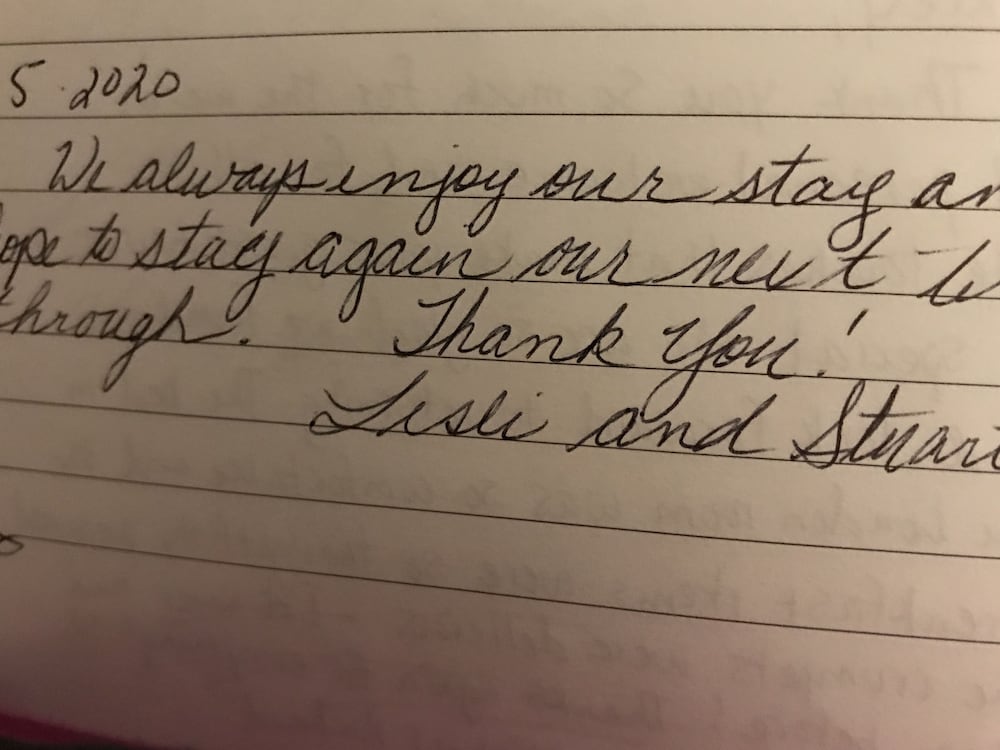 5 2020
We always enjoy our stay an
ope to stay again our next
through. Thank You!
Lesli and Stuar